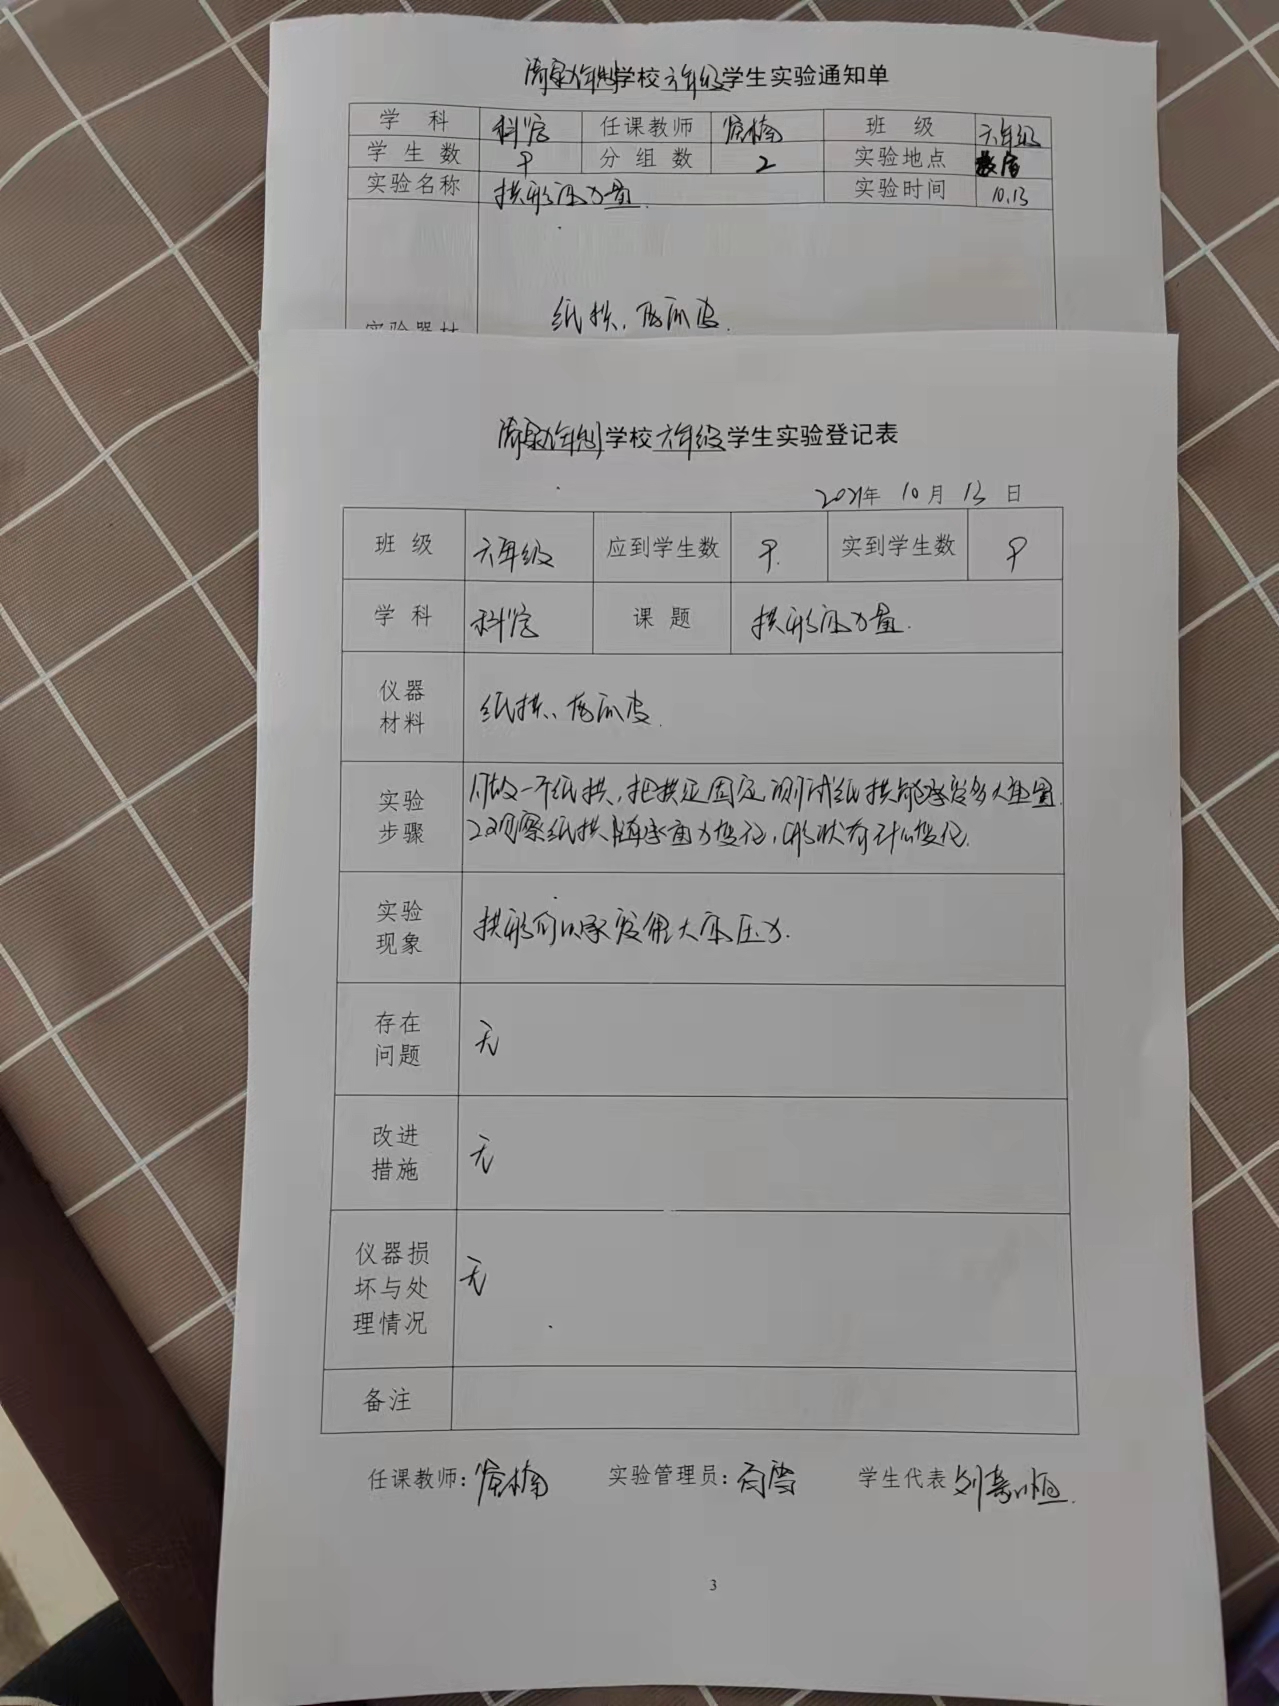 学校六年级学生实验通知单
学 科 科学 任课教师 班 级 六年级
学 生 数 9 分 组 数 2 实验地点 教室
实验名称 拱形的力量. 实验时间 10.13
实验器材 纸拱、西瓜皮.
学校六年级学生实验登记表
2021年 10月 13日
班 级 六年级 应到学生数 9. 实到学生数 9
学 科 科学 课 题 拱形的力量.
仪器
材料
纸拱、西瓜皮.
实验
步骤
1.做一个纸拱,把拱足固定,测试纸拱能承受多大重量.
2.观察纸拱随承重力变化,形状有什么变化.
实验
现象
拱形可以承受很大的压力.
存在
问题
无
改进
措施
无
仪器损
坏与处
理情况
无
备注
任课教师: 实验管理员: 学生代表
3